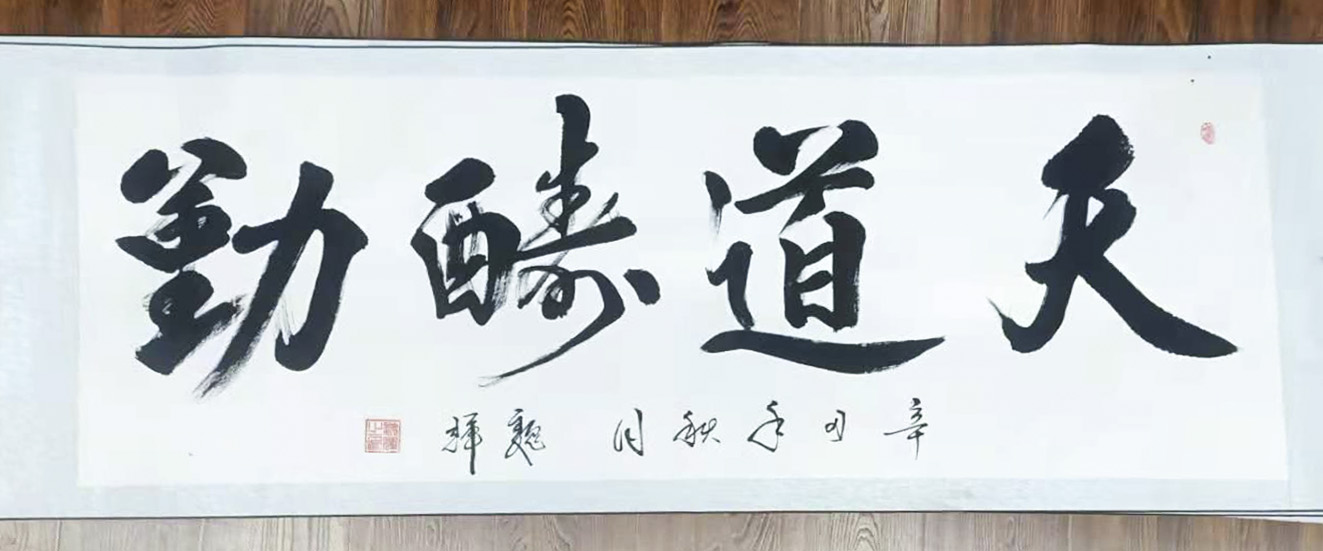 天道酬勤
辛丑年秋月 魏辉